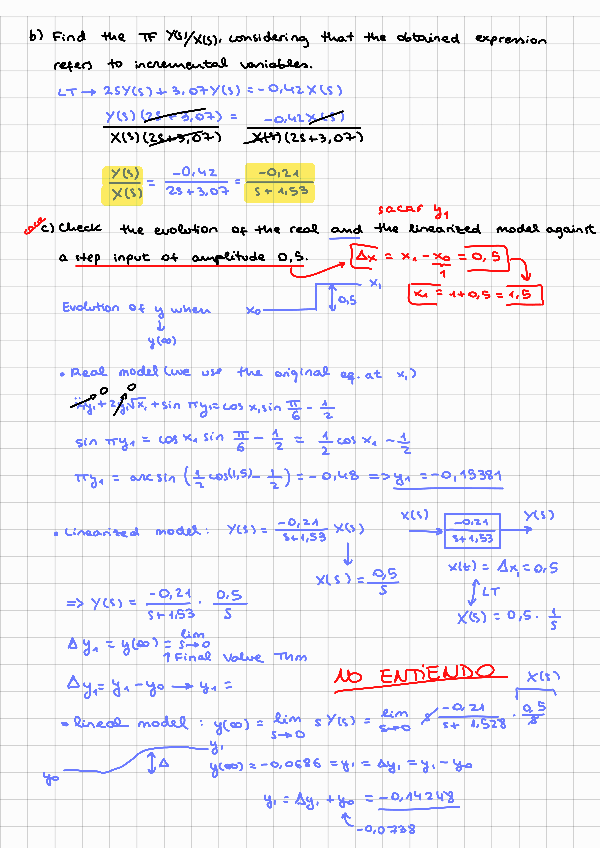 b) Find the TF Y(s)/X(s), considering that the obtained expression
refers to incremental variables.
LT → 2sY(s) + 3,07Y(s) = -0,42X(s)
Y(s)(2s+3,07) / X(s)(2s+3,07) = -0,42X(s) / X(s)(2s+3,07)
Y(s)/X(s) = -0,42/(2s+3,07) = -0,21/(s+1,53)
sacar y₁
c) Check the evolution of the real and the linearized model against
a step input of amplitude 0,5.
Δx = x₁ - x₀ = 0,5
1
x₁ = 1+0,5 = 1,5
Evolution of y when
y(∞)
x₀
x₁
0,5
• Real model (we use the original eq. at x₁)
0 0
ÿ₁ + 2ẏ₁√x₁ + sin πy₁ = cos x₁ sin π/6 - 1/2
sin πy₁ = cos x₁ sin π/6 - 1/2 = 1/2 cos x₁ - 1/2
πy₁ = arcsin (1/2 cos(1,5) - 1/2) = -0,48 ⇒ y₁ = -0,15381
• Linearized model: Y(s) = -0,21/(s+1,53) X(s)
X(s) = 0,5/s
X(s) → -0,21/(s+1,53) → Y(s)
x(t) = Δx₁ = 0,5
LT
X(s) = 0,5 · 1/s
⇒ Y(s) = -0,21/(s+1,53) · 0,5/s
Δy₁ = y(∞) = lim s→0
↑ Final Value Thm
Δy₁ = y₁ - y₀ → y₁ =
NO ENTIENDO
X(s)
• lineal model: y(∞) = lim s→0 sY(s) = lim s→0 s -0,21/(s+1,528) · 0,5/s
y₀
y₁
Δ
y(∞) = -0,0686 = y₁ = Δy₁ = y₁ - y₀
y₁ = Δy₁ + y₀ = -0,14248
-0,0738